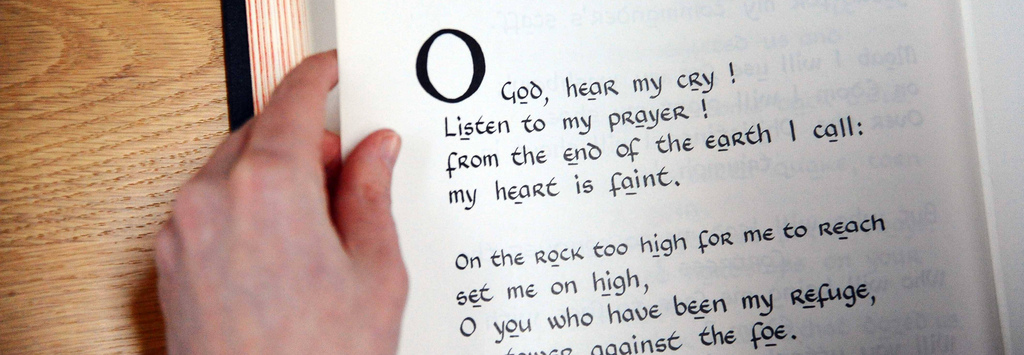 O God, hear my cry !
Listen to my prayer !
from the end of the earth I call:
my heart is faint.
On the rock too high for me to reach
set me on high,
O you who have been my refuge,
tower against the foe.